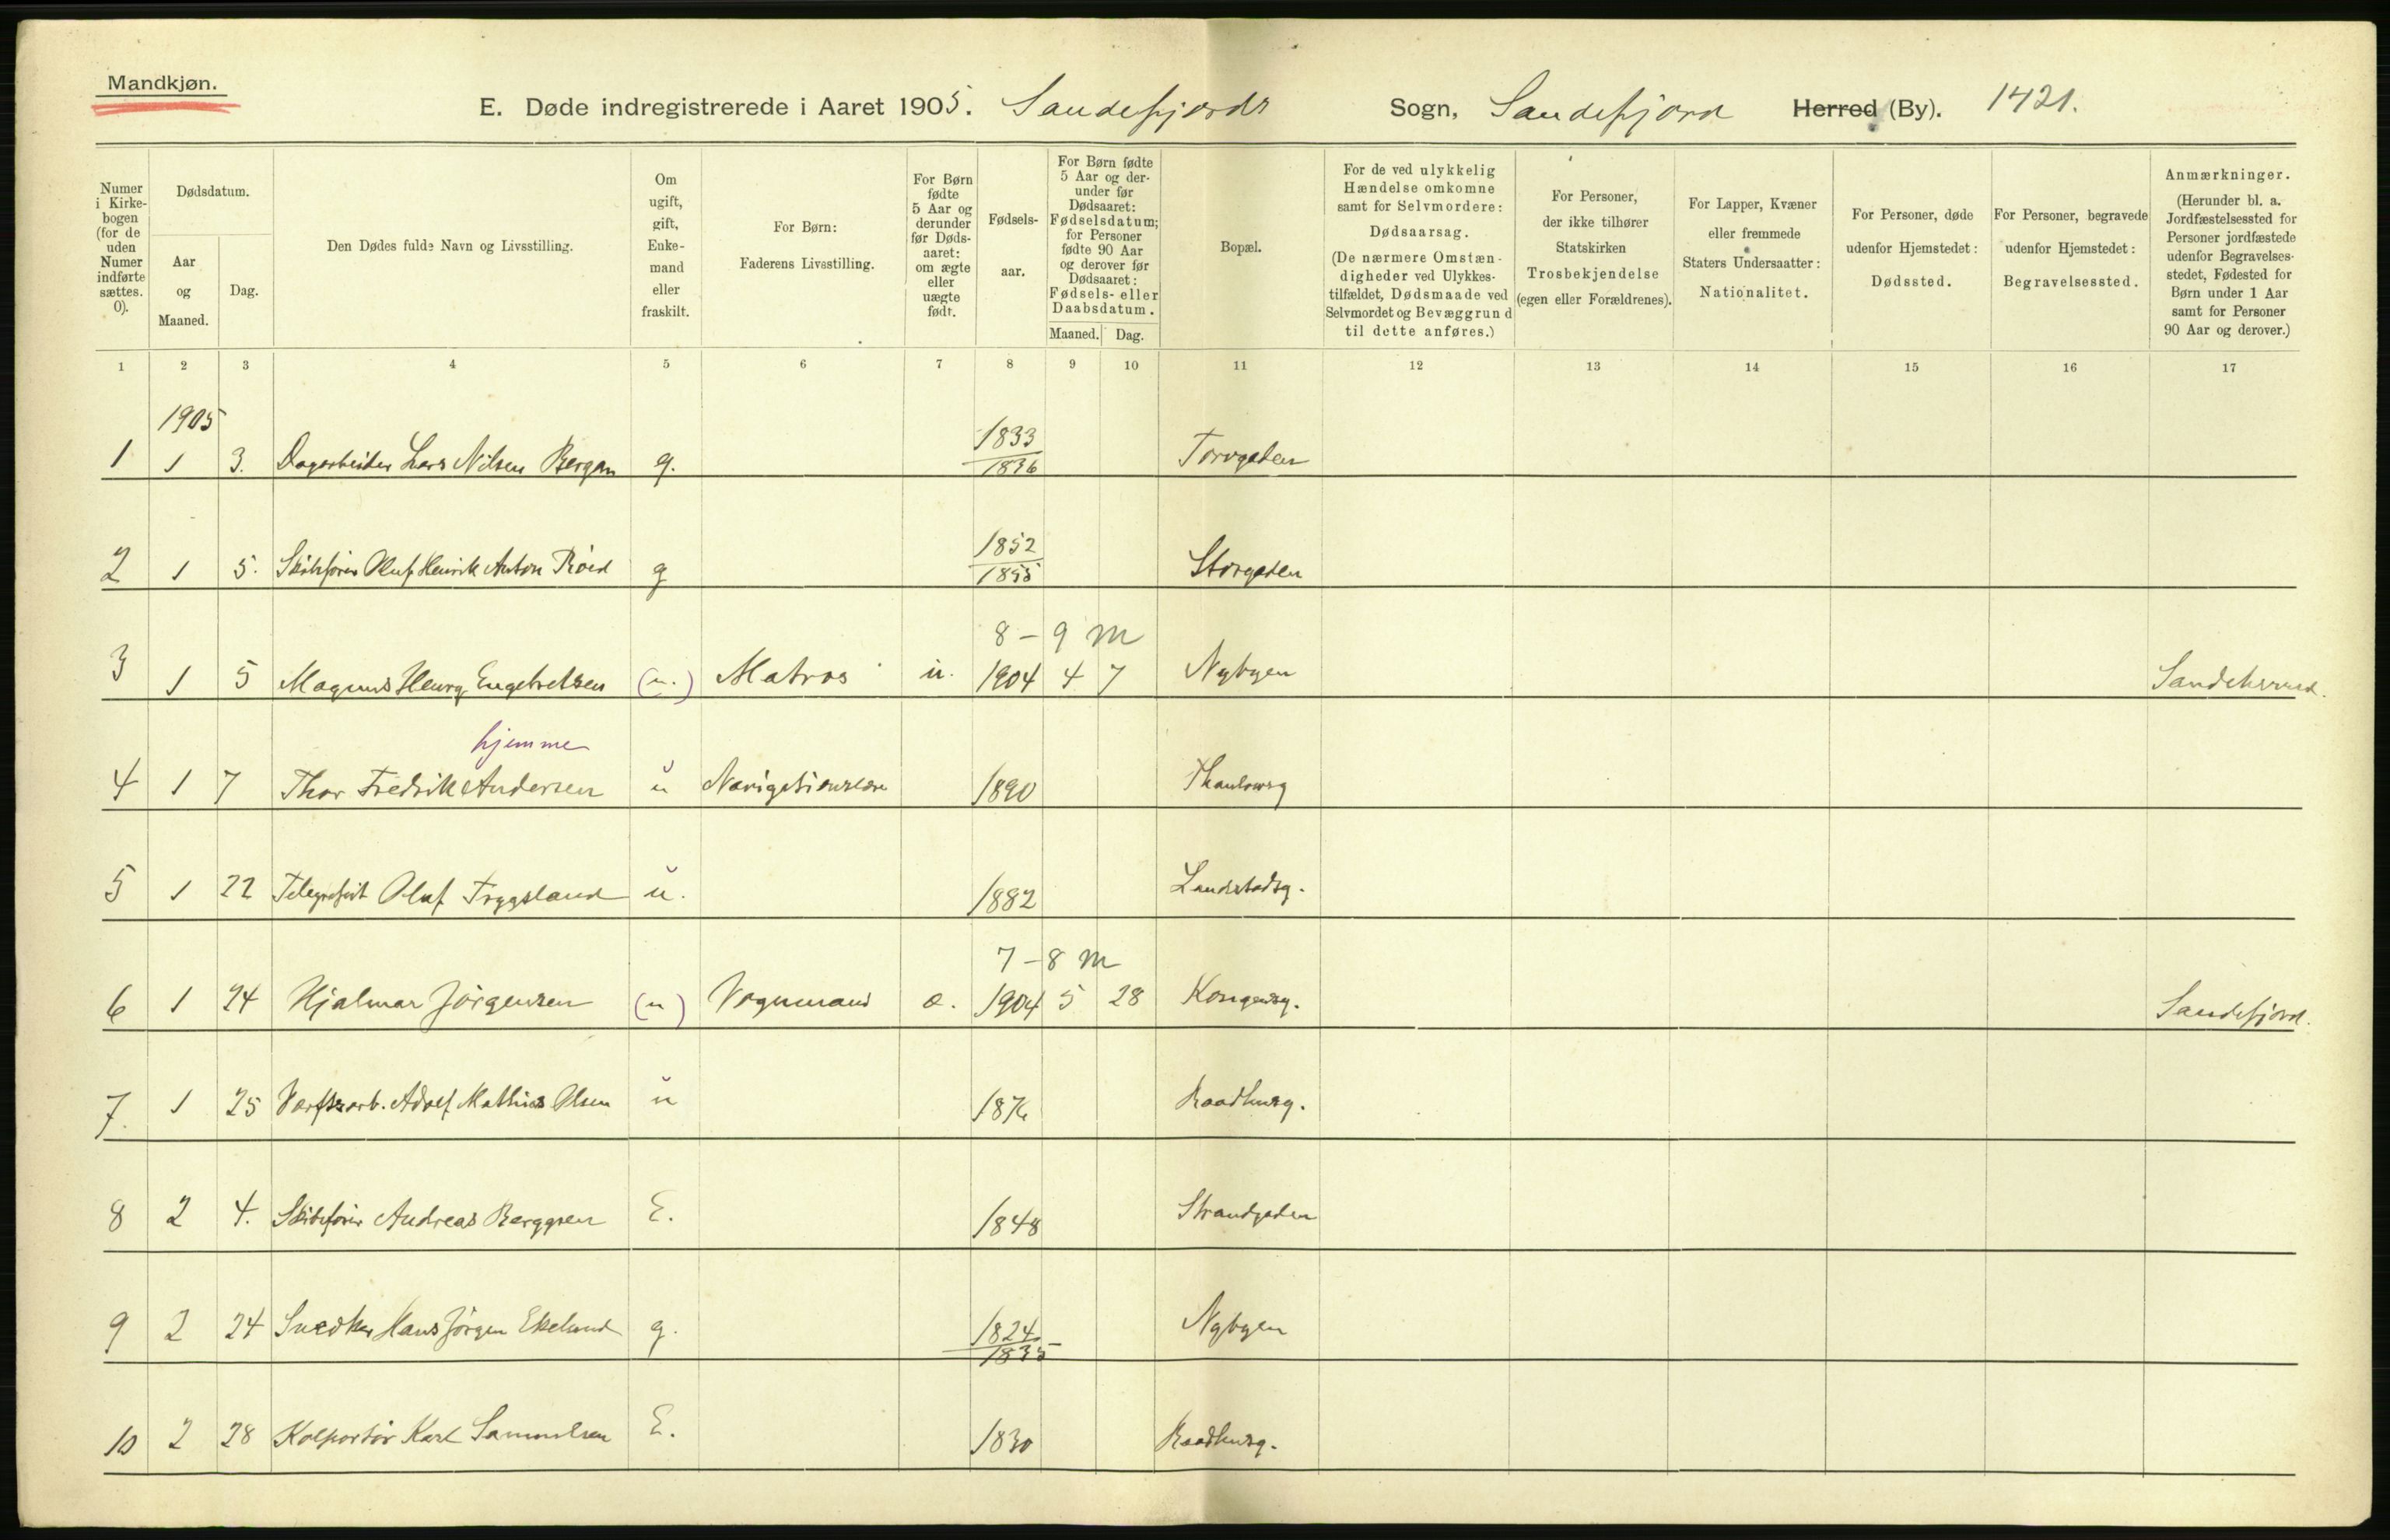 Mandkjøn.
E. Døde indregistrerede i Aaret 1905. Sandefjords Sogn, Sandefjord Herred (By). 1421.
Numer i Kirkebogen (for de uden Numer indførte sættes. 0).
Dødsdatum.
Aar og Maaned.
Dag.
Den Dødes fulde Navn og Livsstilling.
Om ugift, gift, Enkemand eller fraskilt.
For Børn: Faderens Livsstilling.
For Børn fødte 5 Aar og derunder før Dødsaaret: om ægte eller uægte født.
Fødselsaar.
For Børn fødte 5 Aar og derunder før Dødsaaret: Fødselsdatum; for Personer fødte 90 Aar og derover før Dødsaaret: Fødsels- eller Daabsdatum.
Maaned. Dag.
Bopæl.
For de ved ulykkelig Hændelse omkomne samt for Selvmordere: Dødsaarsag. (De nærmere Omstændigheder ved Ulykkestilfældet, Dødsmaade ved Selvmordet og Bevæggrund til dette anføres.)
For Personer, der ikke tilhører Statskirken Trosbekjendelse (egen eller Forældrenes).
For Lapper, Kvæner eller fremmede Staters Undersaatter: Nationalitet.
For Personer, døde udenfor Hjemstedet: Dødssted.
For Personer, begravede udenfor Hjemstedet: Begravelsessted.
Anmærkninger. (Herunder bl. a. Jordfæstelsessted for Personer jordfæstede udenfor Begravelsesstedet, Fødested for Børn under 1 Aar samt for Personer 90 Aar og derover.)
1 2 3 4 5 6 7 8 9 10 11 12 13 14 15 16 17
1905
1833
1 1 3. Dagarbeider Lars Nilsen Bergan g. 1836 Torvgaden
1852
2 1 5. Skibsfører Oluf Henrik Anton g 1855 Storgaden
8-9 M
3 1 5 Magnus Henry Engebretsen (u.) Matros u. 1904 4 7 Nybyen Sandeherred.
hjemme
4 1 7 Thor Fredrik Andersen u 1890 Thaulowsg
5 1 22 Telegrafist Oluf Trygsland u. 1882 Landstadsg.
7-8 M
6 1 24 Hjalmar Jørgensen (u) Vognmand e. 1904 5 28 Kongensg. Sandefjord.
7. 1 25 Værftsarb. Adolf Mathias Olsen u 1876 Raadhusg.
8 2 4. Skibsfører Andreas Berggren E. 1848 Strandgaden
9 2 24 Snedker Hans Jørgen Ekelund g. 1824 Nybyen
1835
10 2 28 Kolportør Karl Samuelsen E. 1830 Raadhusg.